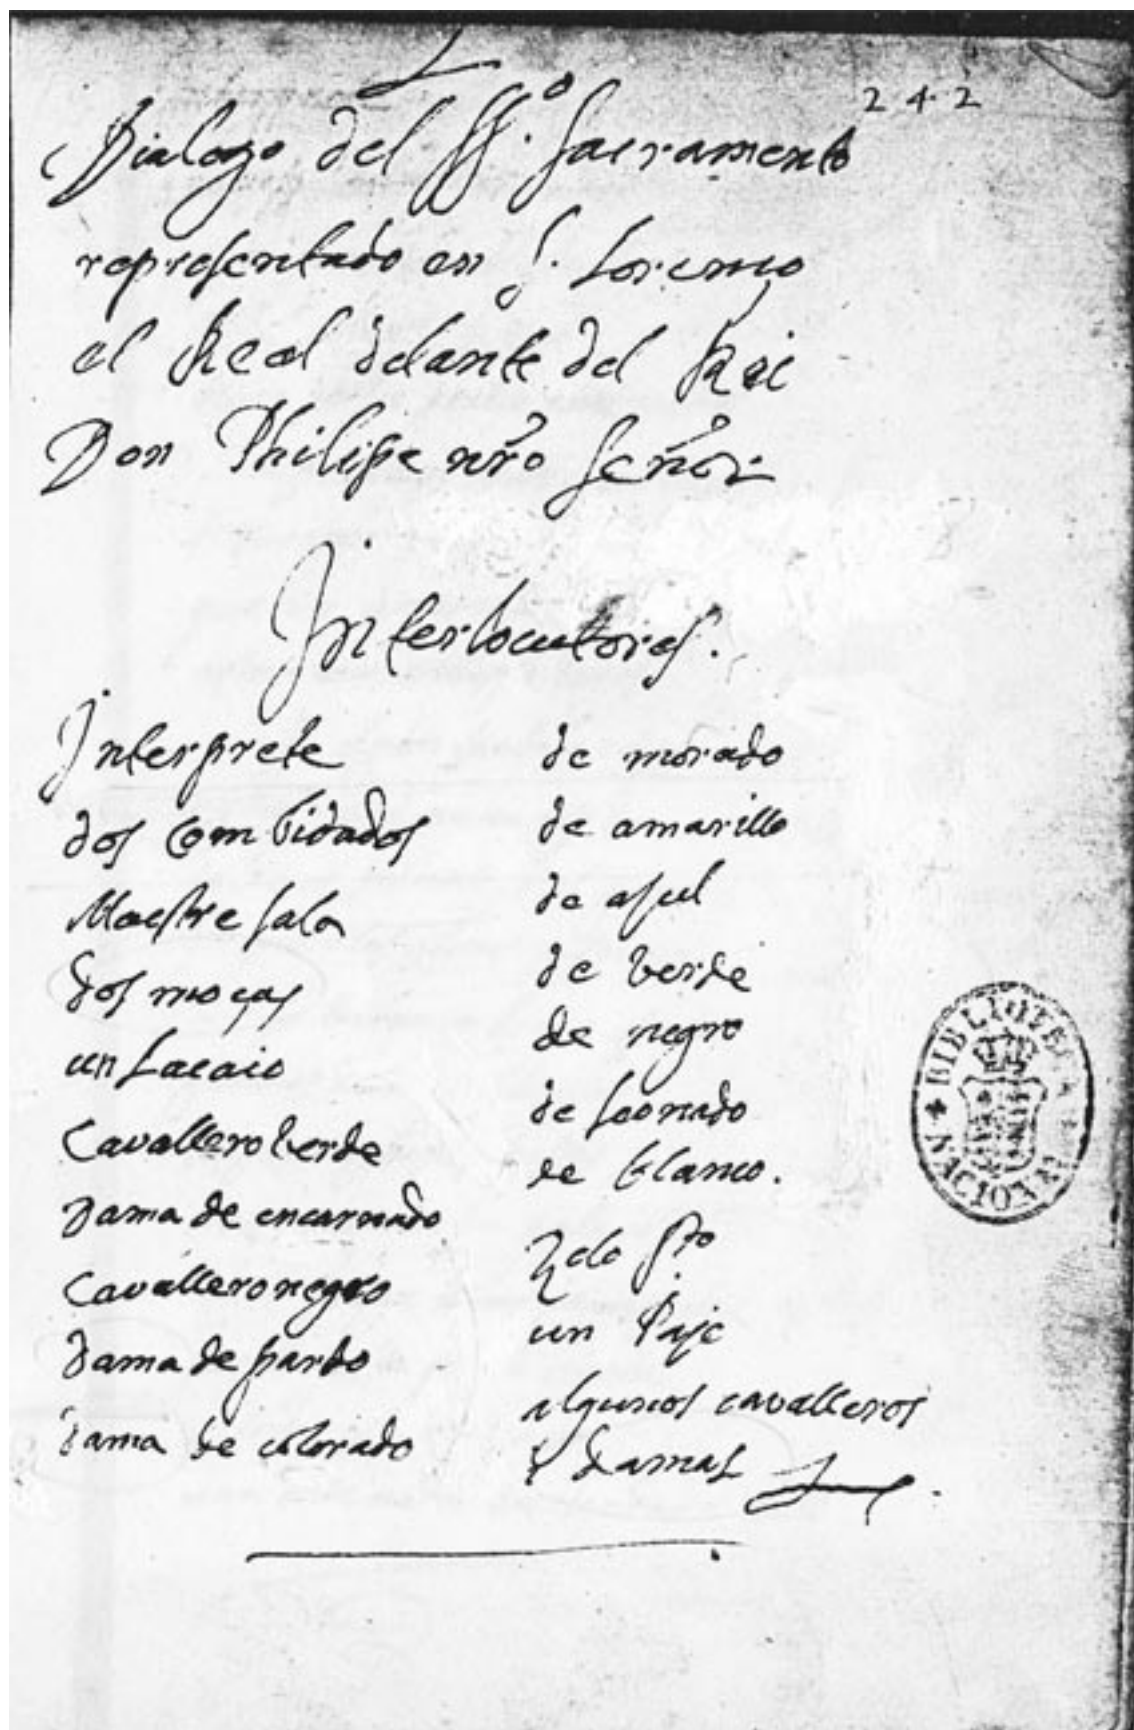 242
Dialogo del SS.º Sacramento
representado en S. Lorenço
el Real delante del Rei
Don Philipe nrõ Señor
Interlocutores.
Interprete
dos combidados
Maestresala
dos moças
un Lacaio
Cavallero verde
Dama de encarnado
Cavallero negro
Dama de pardo
Dama de colorado
de morado
de amarillo
de asul
de verde
de negro
de leonado
de blanco.
un Paje
algunos cavalleros
y damas
BIBLIOTECA NACIONAL